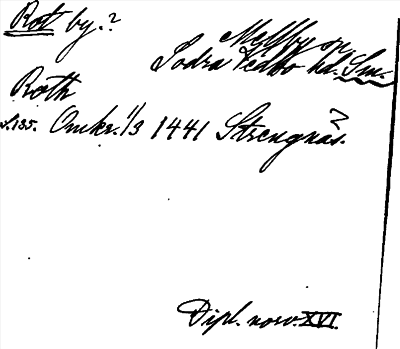 Rot by.?
Mellby sn
Södra Vedbo hd. Sm.
Roth
s. 135. Omkr. 11/3 1441 Strengnäs.
Dipl. norv. XVI.